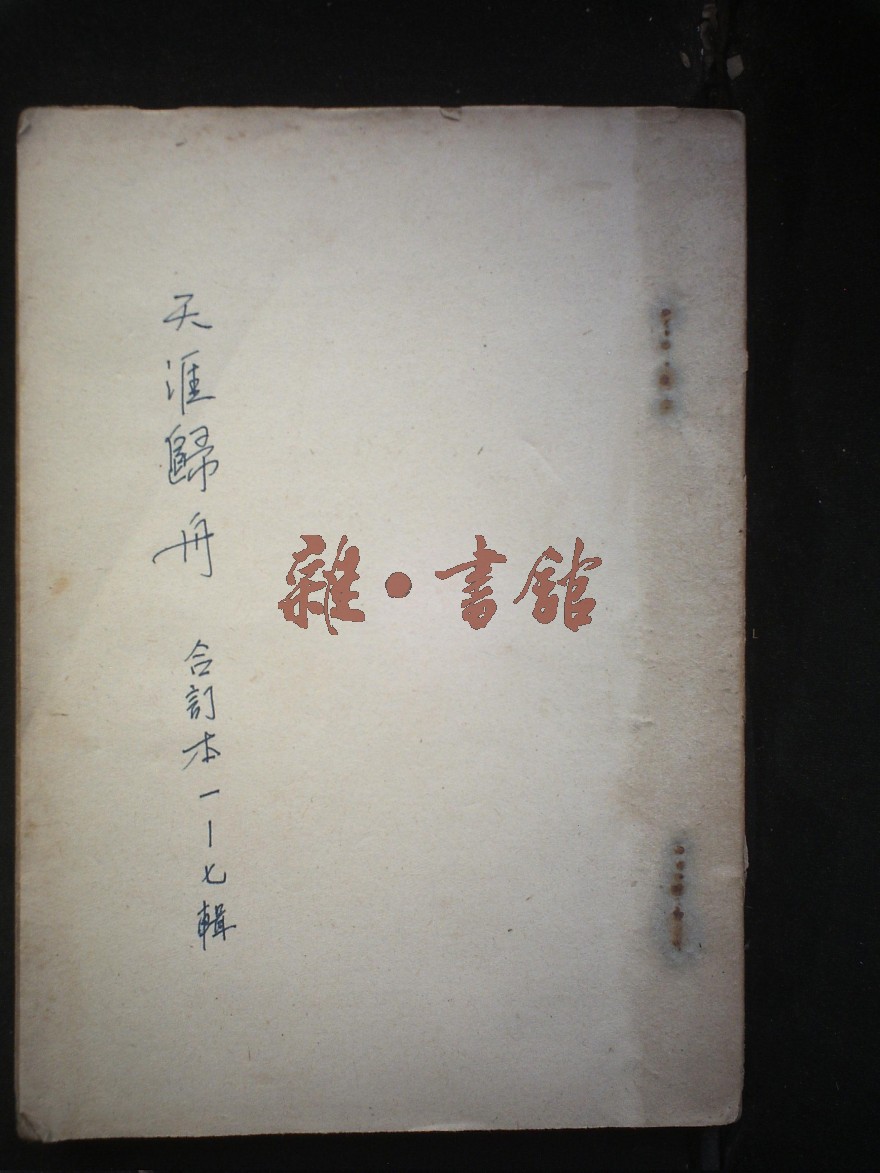 天涯歸舟
合訂本一—七輯
雜·書館